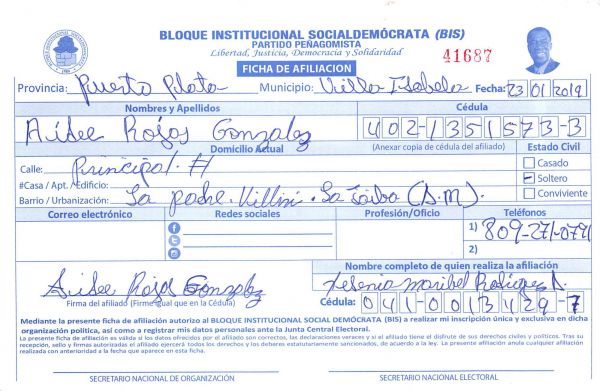 BLOQUE INSTITUCIONAL SOCIALDEMÓCRATA (BIS)
PARTIDO PEÑAGOMISTA
Libertad, Justicia, Democracia y Solidaridad
41687
FICHA DE AFILIACION
Provincia: Puerto Plata Municipio: Villa Isabela Fecha: 23 01 2019
Nombres y Apellidos Cédula
Aidee Rojas Gonzalez 402-1351573-3
Domicilio Actual (Anexar copia de cédula del afiliado) Estado Civil
Calle: Principal #
Casado
#Casa / Apt. / Edificio:
Soltero
Barrio / Urbanización: La padre (D.M).
Conviviente
Correo electrónico Redes sociales Profesión/Oficio Teléfonos
1) 809-271-0791
2)
Nombre completo de quien realiza la afiliación
Aidee Rojas Gonzalez Yesenia Maribel Rodriguez
Firma del afiliado (Firme igual que en la Cédula) Cédula: 041-0013429-7
Mediante la presente ficha de afiliado autorizo al BLOQUE INSTITUCIONAL SOCIAL DEMÓCRATA (BIS) a realizar mi inscripción única y exclusiva en dicha
organización política, así como a registrar mis datos personales ante la Junta Central Electoral.
La presente ficha de afiliación es válida si los datos ofrecidos por el afiliado son correctos, las declaraciones veraces y si el afiliado tiene el disfrute de sus derechos civiles y políticos. Tras su
recepción, sello y firmas autorizadas el afiliado ejercerá todos los derechos y los deberes estatutariamente sancionados, de acuerdo a la ley. La presente afiliación anula cualquier afiliación
realizada con anterioridad a la fecha que aparece en esta ficha.
SECRETARIO NACIONAL DE ORGANIZACIÓN SECRETARIO NACIONAL ELECTORAL